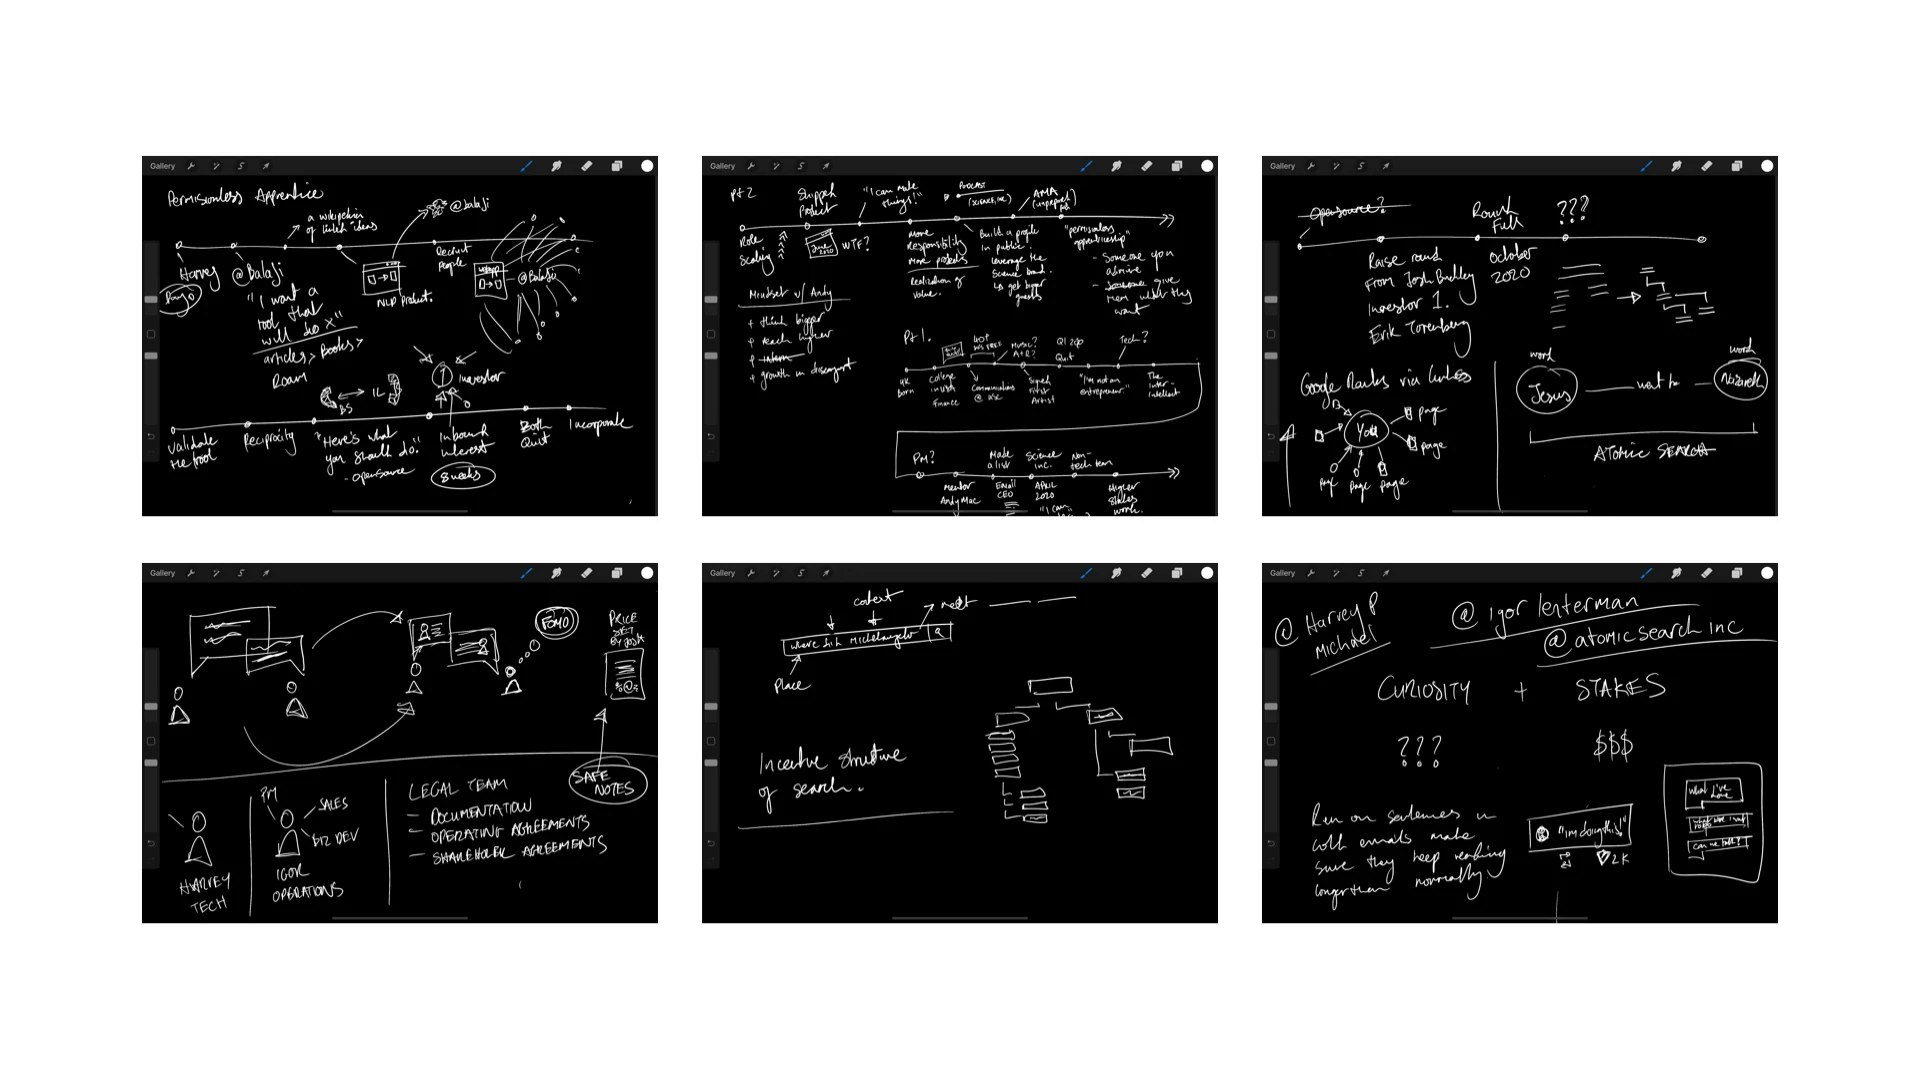 Gallery
Permissionless Apprentice
a wikipedia
of linked ideas
@balaji
Harvey
Day 0
@Balaji
"I want a
tool that
will do x"
articles > Books >
Roam
NLP Product.
Recruit
People
@Balaji
BS
IL
1
investor
Validate
the tool
Reciprocity
"Here's what
you should do."
- opensource
Inbound
interest
8 weeks
Both
Quit
Incorporate
Gallery
Pt 2
Shipped
Product
"I can make
things!"
PODCAST
(SCIENCE, INC.)
AMA
(unprepared)
Role
Scaling
June
2020
WTF?
More
Responsibility
More projects
Realization of
value.
Build a profile
in public.
leverage the
Science brand.
↳ get bigger
guests
"permissionless
apprenticeship"
- Someone you
admire
- Someone give
them what they
want
Mindset w/ Andy
+ think bigger
+ reach higher
+ growth in discomfort
Pt 1.
UK
Born
College
in USA
Finance
Communications
@ USC
Music?
A+R?
Signed
First
Artist
Q1 2020
Quit
"I'm not an
entrepreneur."
Tech?
The
Inter-
intellect
PM?
Mentor
Andy Mac
Made
a list
Email
CEO
Science
inc.
APRIL
2020
"I can
Non-
tech team
Higher
Stakes
work.
Gallery
Opensource?
Round
Full
???
Raise round
From Josh Buckley
Investor 1.
Erik Torenberg
October
2020
Google Ranks via links
You
page
page
page
page
page
word
Jesus
went to
word
Nazareth
ATOMIC SEARCH
Gallery
FOMO
PRICE
SET
BY JOSH
SAFE
NOTES
HARVEY
TECH
PM
SALES
BIZ DEV
IGOR
OPERATIONS
LEGAL TEAM
- DOCUMENTATION
- OPERATING AGREEMENTS
- SHAREHOLDER AGREEMENTS
Gallery
context
where did Michelangelo
Place
Incentive structure
of search.
Gallery
@ Harvey P
Michael
@ igor lenterman
@ atomic search inc
CURIOSITY + STAKES
???
$$$
Run on sentences in
cold emails make
sure they keep reading
longer than normally.
"im doing this!"
2K
what I've
done
can we talk?